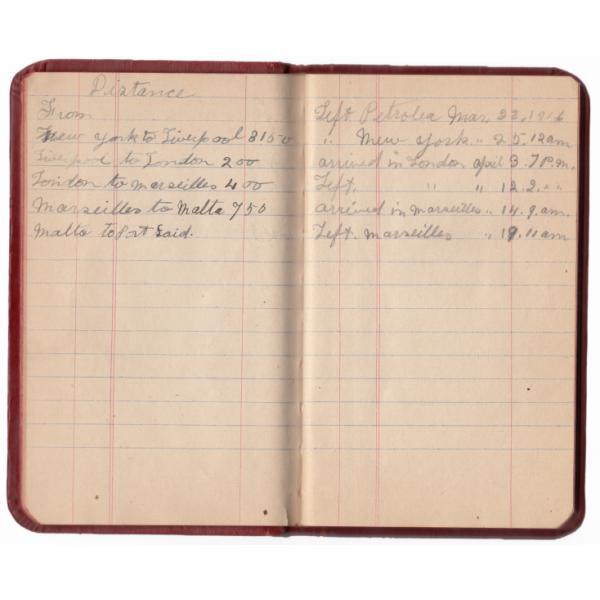 Distance
From
New York to Liverpool 3150
Liverpool to London 200
London to Marseilles 400
Marseilles to Malta 750
Malta to Port Said.
Left Petrolea Mar. 22, 1916
" New York " 25. 12 am
arrived in London april 3. 7 P.M.
Left. " " 12. 2. " "
arrived in Marseilles " 14. 9. am.
Left. Marseilles " 19. 11 am